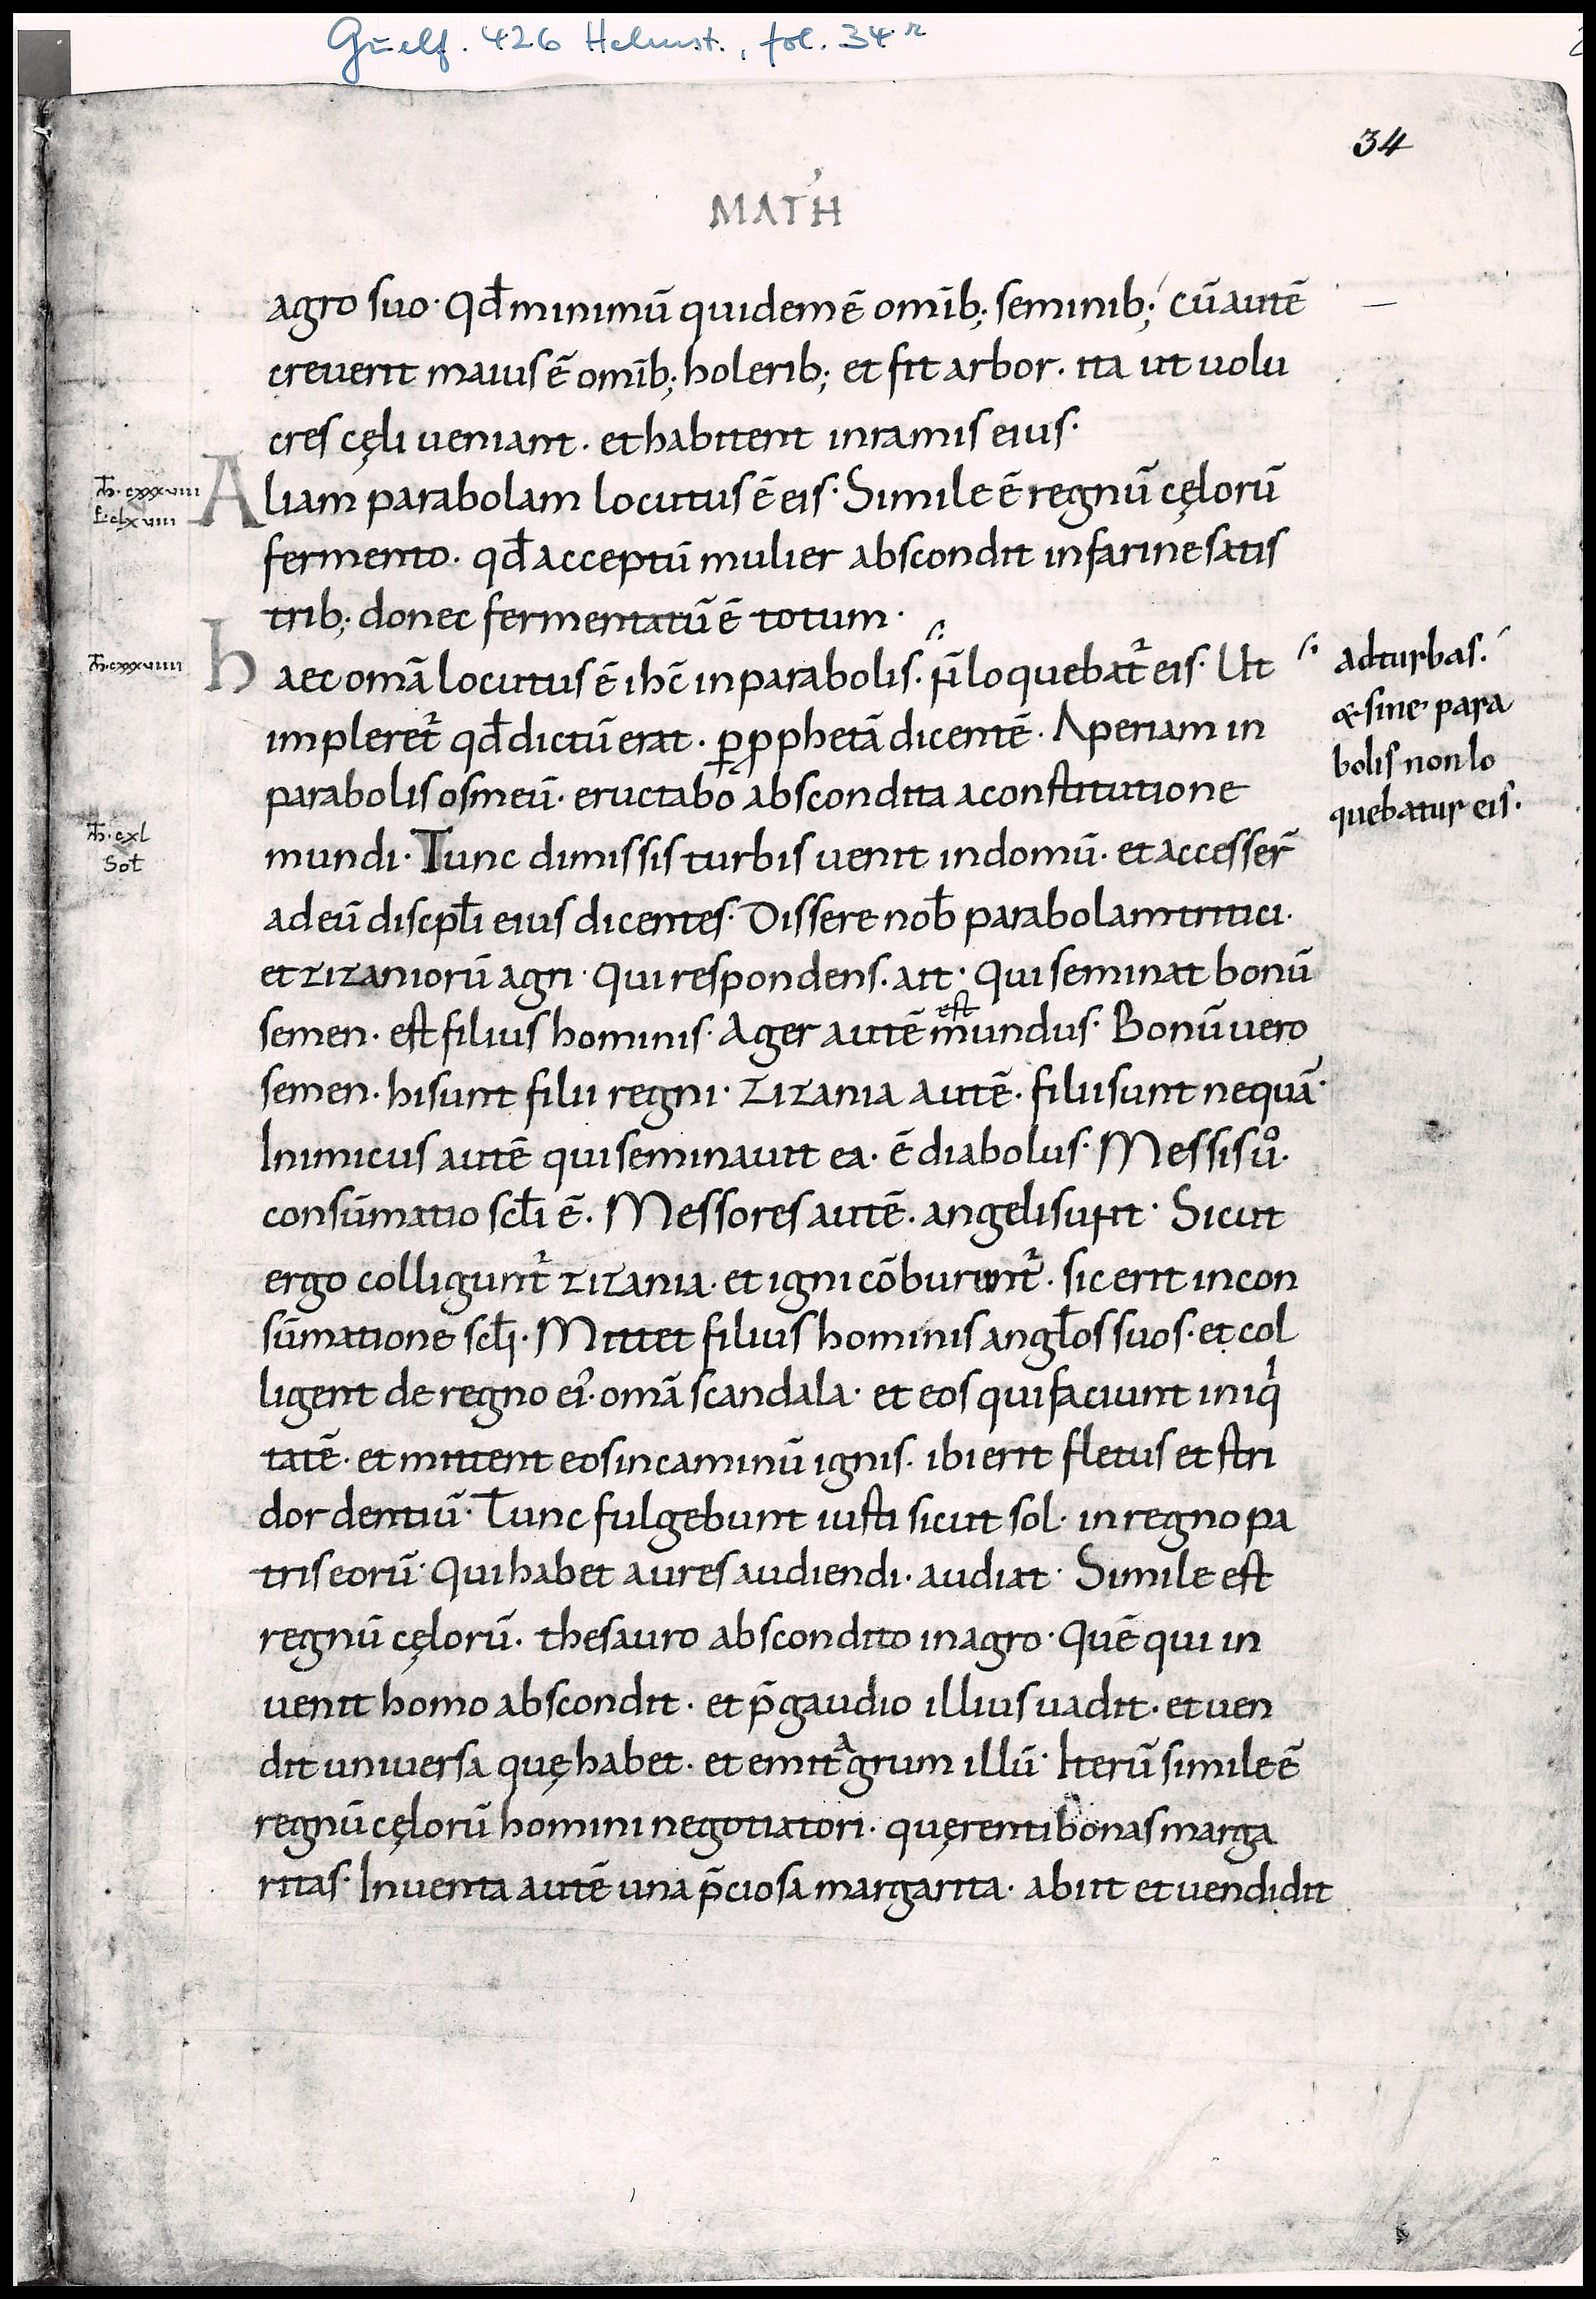 Guelf. 426 Helmst., fol. 34r
34
MATH
agro suo· Qđ minimū quidem ē omīb; seminib; Cū autē
creverit maius ē omīb; holerib; et fit arbor· ita ut uolu
cres cęli ueniant· et habitent in ramis eius·
Aliam parabolam locutus ē eis· Simile ē regnū cęlorū
fermento· qđ acceptū mulier abscondit in farine satis
trib; donec fermentatū ē totum·
haec omā locutus ē ihc̄ in parabolis· loquebat᷑ eis· Ut
impleret᷑ qđ dictū erat· ꝑ ꝓphetā dicentē· Aperiam in
parabolis os meū· eructabo abscondita a constitutione
mundi· Tunc dimissis turbis uenit in domū· et accesser̄
ad eū discpłi eius dicentes· Dissere nob̄ parabolam tritici·
et zizaniorū agri· Qui respondens· ait· Qui seminat bonū
semen· est filius hominis· Ager autē est mundus· Bonū uero
semen· hi sunt filii regni· Zizania autē· filii sunt nequā·
Inimicus autē qui seminauit ea· ē diabolus· Messis uͦ·
consūmatio scłi ē· Messores autē· angeli sunt· Sicut
ergo colligunt᷑ zizania· et igni cōburunt᷑· sic erit in con
sūmatione scłi· Mittet filius hominis angłos suos· et col
ligent de regno ei᾽· omā scandala· et eos qui faciunt iniqⁱ
tatē· et mittent eos in caminū ignis· ibi erit fletus et stri
dor dentiū· Tunc fulgebunt iusti sicut sol· in regno pa
tris eorū· Qui habet aures audiendi· audiat· Simile est
regnū cęlorū· thesauro abscondito in agro· Quē qui in
uenit homo abscondit· et p̄ gaudio illius uadit· et uen
dit universa quę habet· et emit agrum illū· Iterū simile ē
regnū cęlorū homini negotiatori· quęrenti bonas marga
ritas· Inuenta autē una p̄ciosa margarita· abiit et uendidit
ad turbas·
& sine para
bolis non lo
quebatur eis·
Th· cxxxviii
L· clxviii
Th· cxxxviiii
Th· cxl
Sot